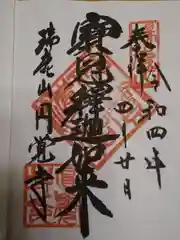 奉拝
令和四年
四月廿日
寶冠釋迦如来
瑞鹿山円覚寺